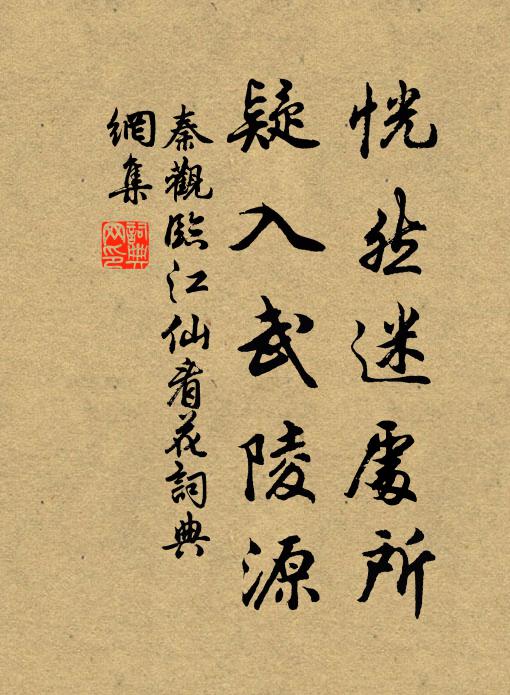 恍然迷處所
疑入武陵源
秦觀臨江仙看花詞典
網集
詞典
网印